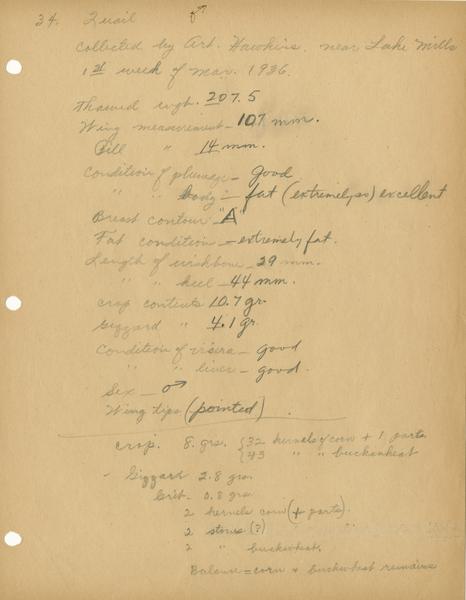 34. Quail ♂
Collected by Art. Hawkins. near Lake Mills
1st week of Mar. 1936.
Thawed wght. 207.5
Wing measurement - 107 mm.
Bill " 14 mm.
Condition of plumage - good
" " body - fat (extremely so) excellent
Breast contour "A"
Fat conditions - extremely fat.
Length of wishbone - 29 mm.
" " keel - 44 mm.
Crop contents 10.7 gr.
Gizzard " 4.1 gr.
Condition of visera - good
" " liver - good.
Sex - ♂
Wing tips (pointed).
Crop. 8. grs. { 32 kernels of corn + 1 parts.
{ 43 " " buckwheat
- Gizzard 2.8 grs.
Grit. 0.8 grs.
2 kernels corn (+ parts).
2 stones (?)
2 " buckwheat.
Balance = corn + buckwheat remains